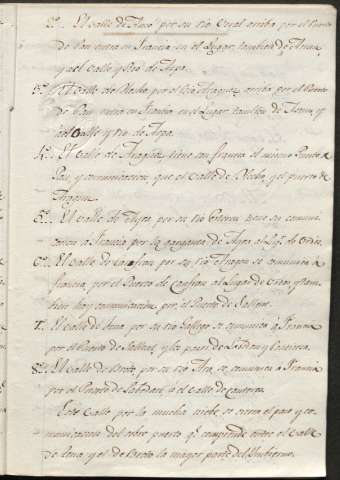 2º. El Valle de Ansó por su rio Veral arriba, por el Puerto
de Pau entra en Francia en el Lugar tambien de
y al Valle y Rio de Aspa.
3º. El Valle de Hecho por el Rio Aragon, arriba por el Puerto
de Pau entra en Francia en el Lugar tambien de
al Valle y rio de Aspa.
4º. El Valle de Aragues, tiene con francia el mismo Puerto de
Pau y comunicacion que el Valle de Hecho, y el puerto de
Aragues.
5º. El Valle de Aysa por su rio Estarrun tiene su comuni-
cacion a Francia por la garganta de Aysa al Lugr. de Ordos
6º. El Valle de Canfran por su rio Aragon se comunica à
francia, por el Puerto de Canfran al Lugar de Ordos, y tam-
bien hay comunicacion por el Puerto de
7º. El Valle de Tena por su rio Gallego se comunica à Francia
por el Puerto de Sallent, y los pasos de
8º. El Valle de Broto, por su rio Ara, se comunica à Francia
por el Puerto de à el Valle de
Este Valle por la mucha nieve, se cierra el paso y co-
municacion del sobre puerto qe. comprende entre el Valle
de Tena y el de Broto la mayor parte del Imbierno.